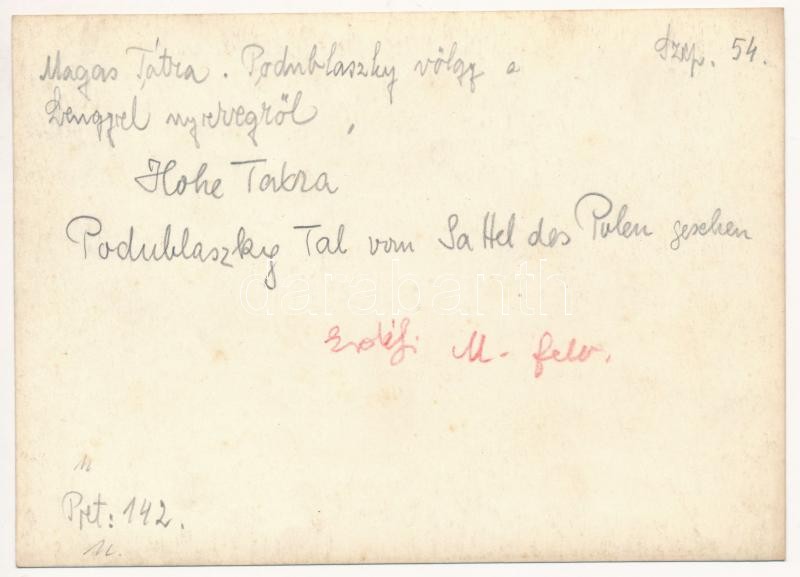 Szep. 54.
Magas Tátra. Podublaszky völgy a
Lengyel nyeregről,
Hohe Tatra
Podublaszky Tal vom Sattel des Polen gesehen
darabanth
Erdélyi M. felv.
11
Pjet: 142.
11.